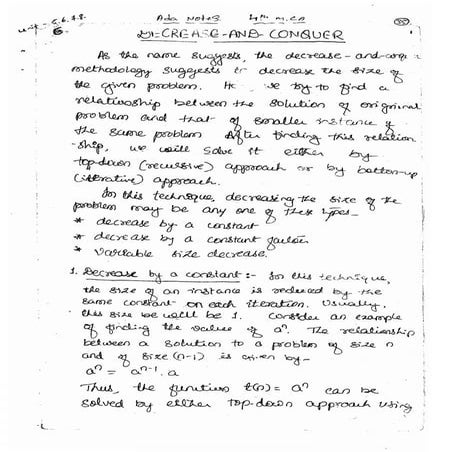 Ada Notes 4th M.CA
Unit - 6
DECREASE-AND-CONQUER
As the name suggests, the decrease-and-conq
methodology suggests to decrease the size of
the given problem. He we try to find a
relationship between the solution of original
problem and that of smaller instance of
the same problem After finding this relation
-ship, we will solve it either by
top-down (recursive) approach or by bottom-up
(iterative) approach.
In this technique, decreasing the size of the
problem may be any one of these types-
* decrease by a constant
* decrease by a constant factor
* Variable size decrease.
1. Decrease by a constant:- In this technique,
the size of an instance is reduced by the
same constant on each iteration. Usually,
this size be will be 1. Consider an example
of finding the value of aⁿ. The relationship
between a solution to a problem of size n
and of size (n-1) is given by-
aⁿ = aⁿ⁻¹. a
Thus, the function t(n) = aⁿ can be
solved by either top-down approach using